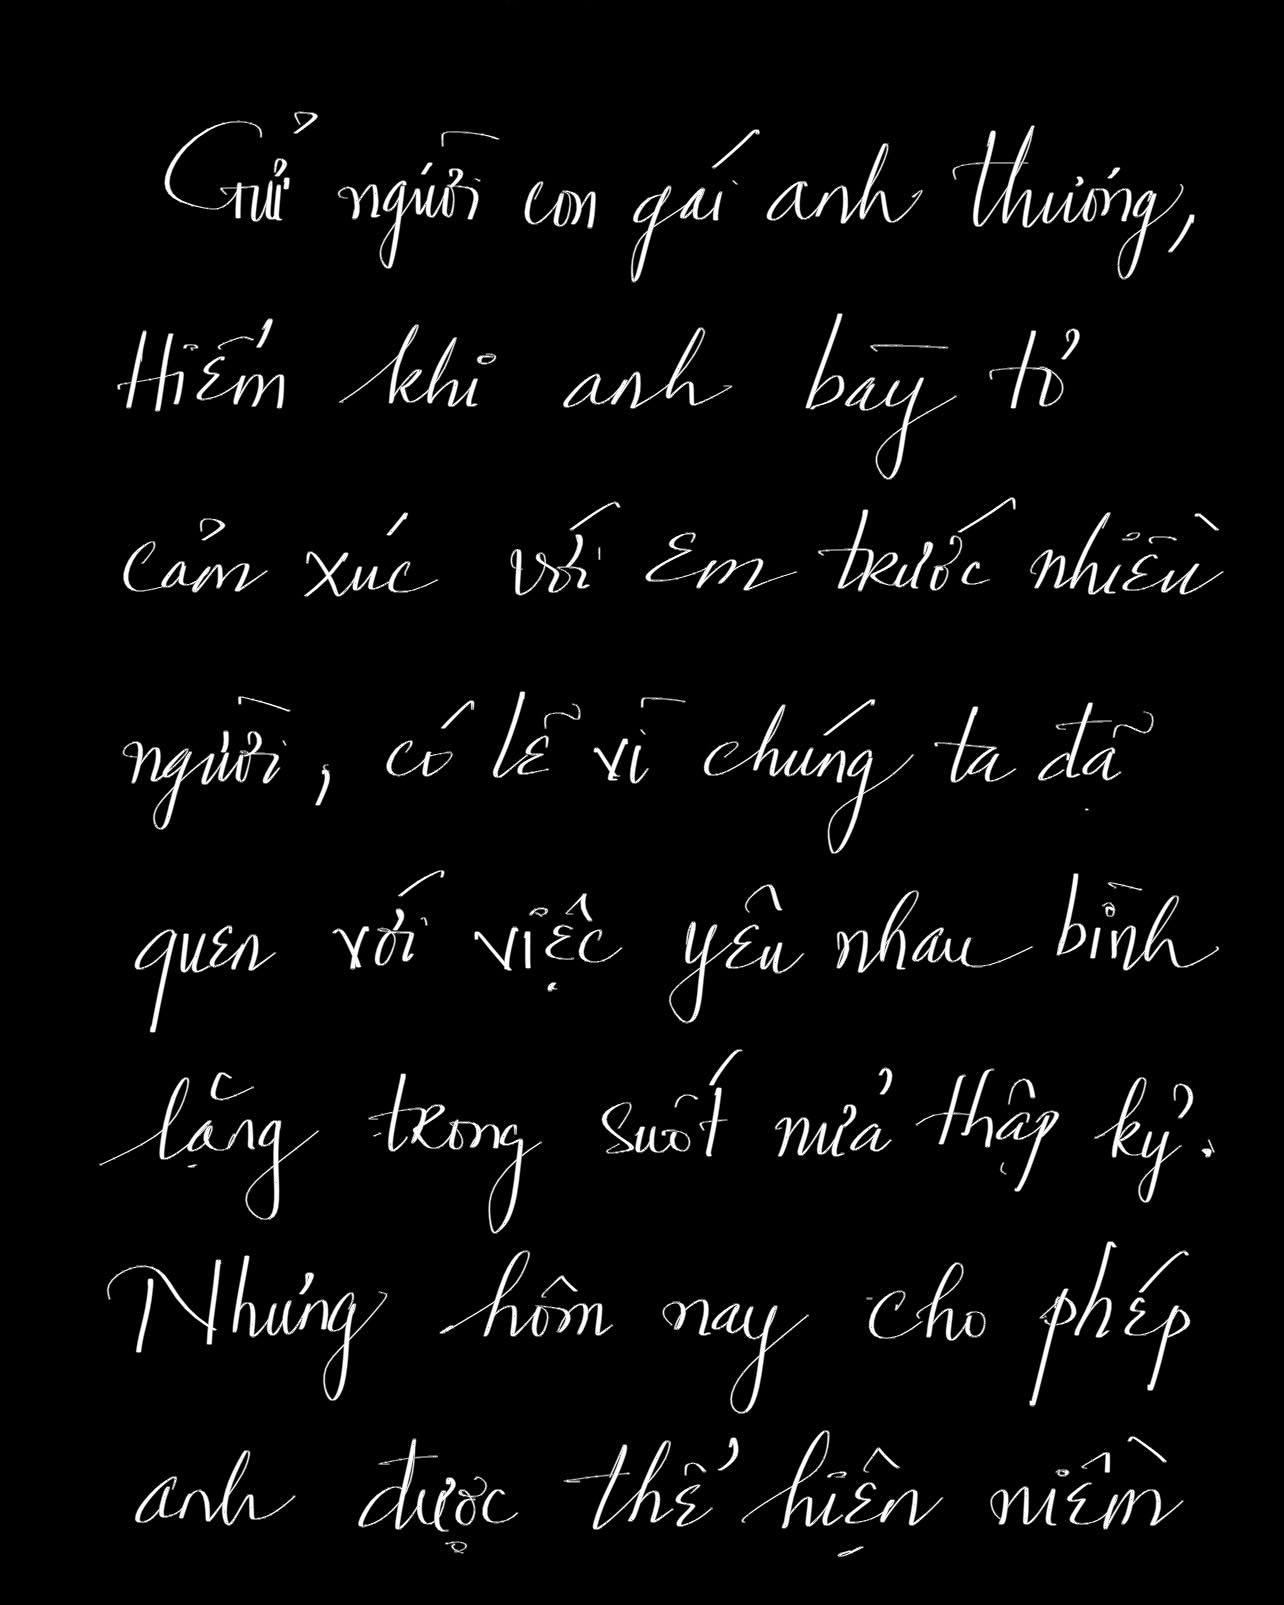 Gửi người con gái anh thương,
Hiếm khi anh bày tỏ
cảm xúc với em trước nhiều
người, có lẽ vì chúng ta đã
quen với việc yêu nhau bình
lặng trong suốt nửa thập kỷ.
Nhưng hôm nay cho phép
anh được thể hiện niềm